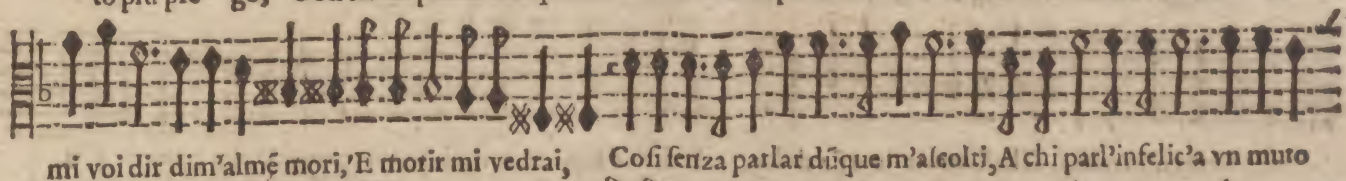 mi voi dir dim'almẽ mori,'E morir mi vedrai, Cosi senza parlar dũque m'ascolti, A chi parl'infelic'a vn muto